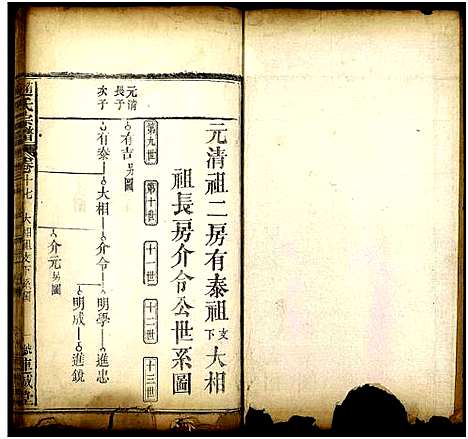 元清祖二房有泰祖支下大相
祖長房介令公世系圖
第九世 第十世 十一世 十二世 十三世
元清
長子 有吉另圖
次子 有泰 大相 介令 明學 進忠
明成 進鏡
介元另圖
氏宗譜 卷十七 大相祖支下系圖
堂